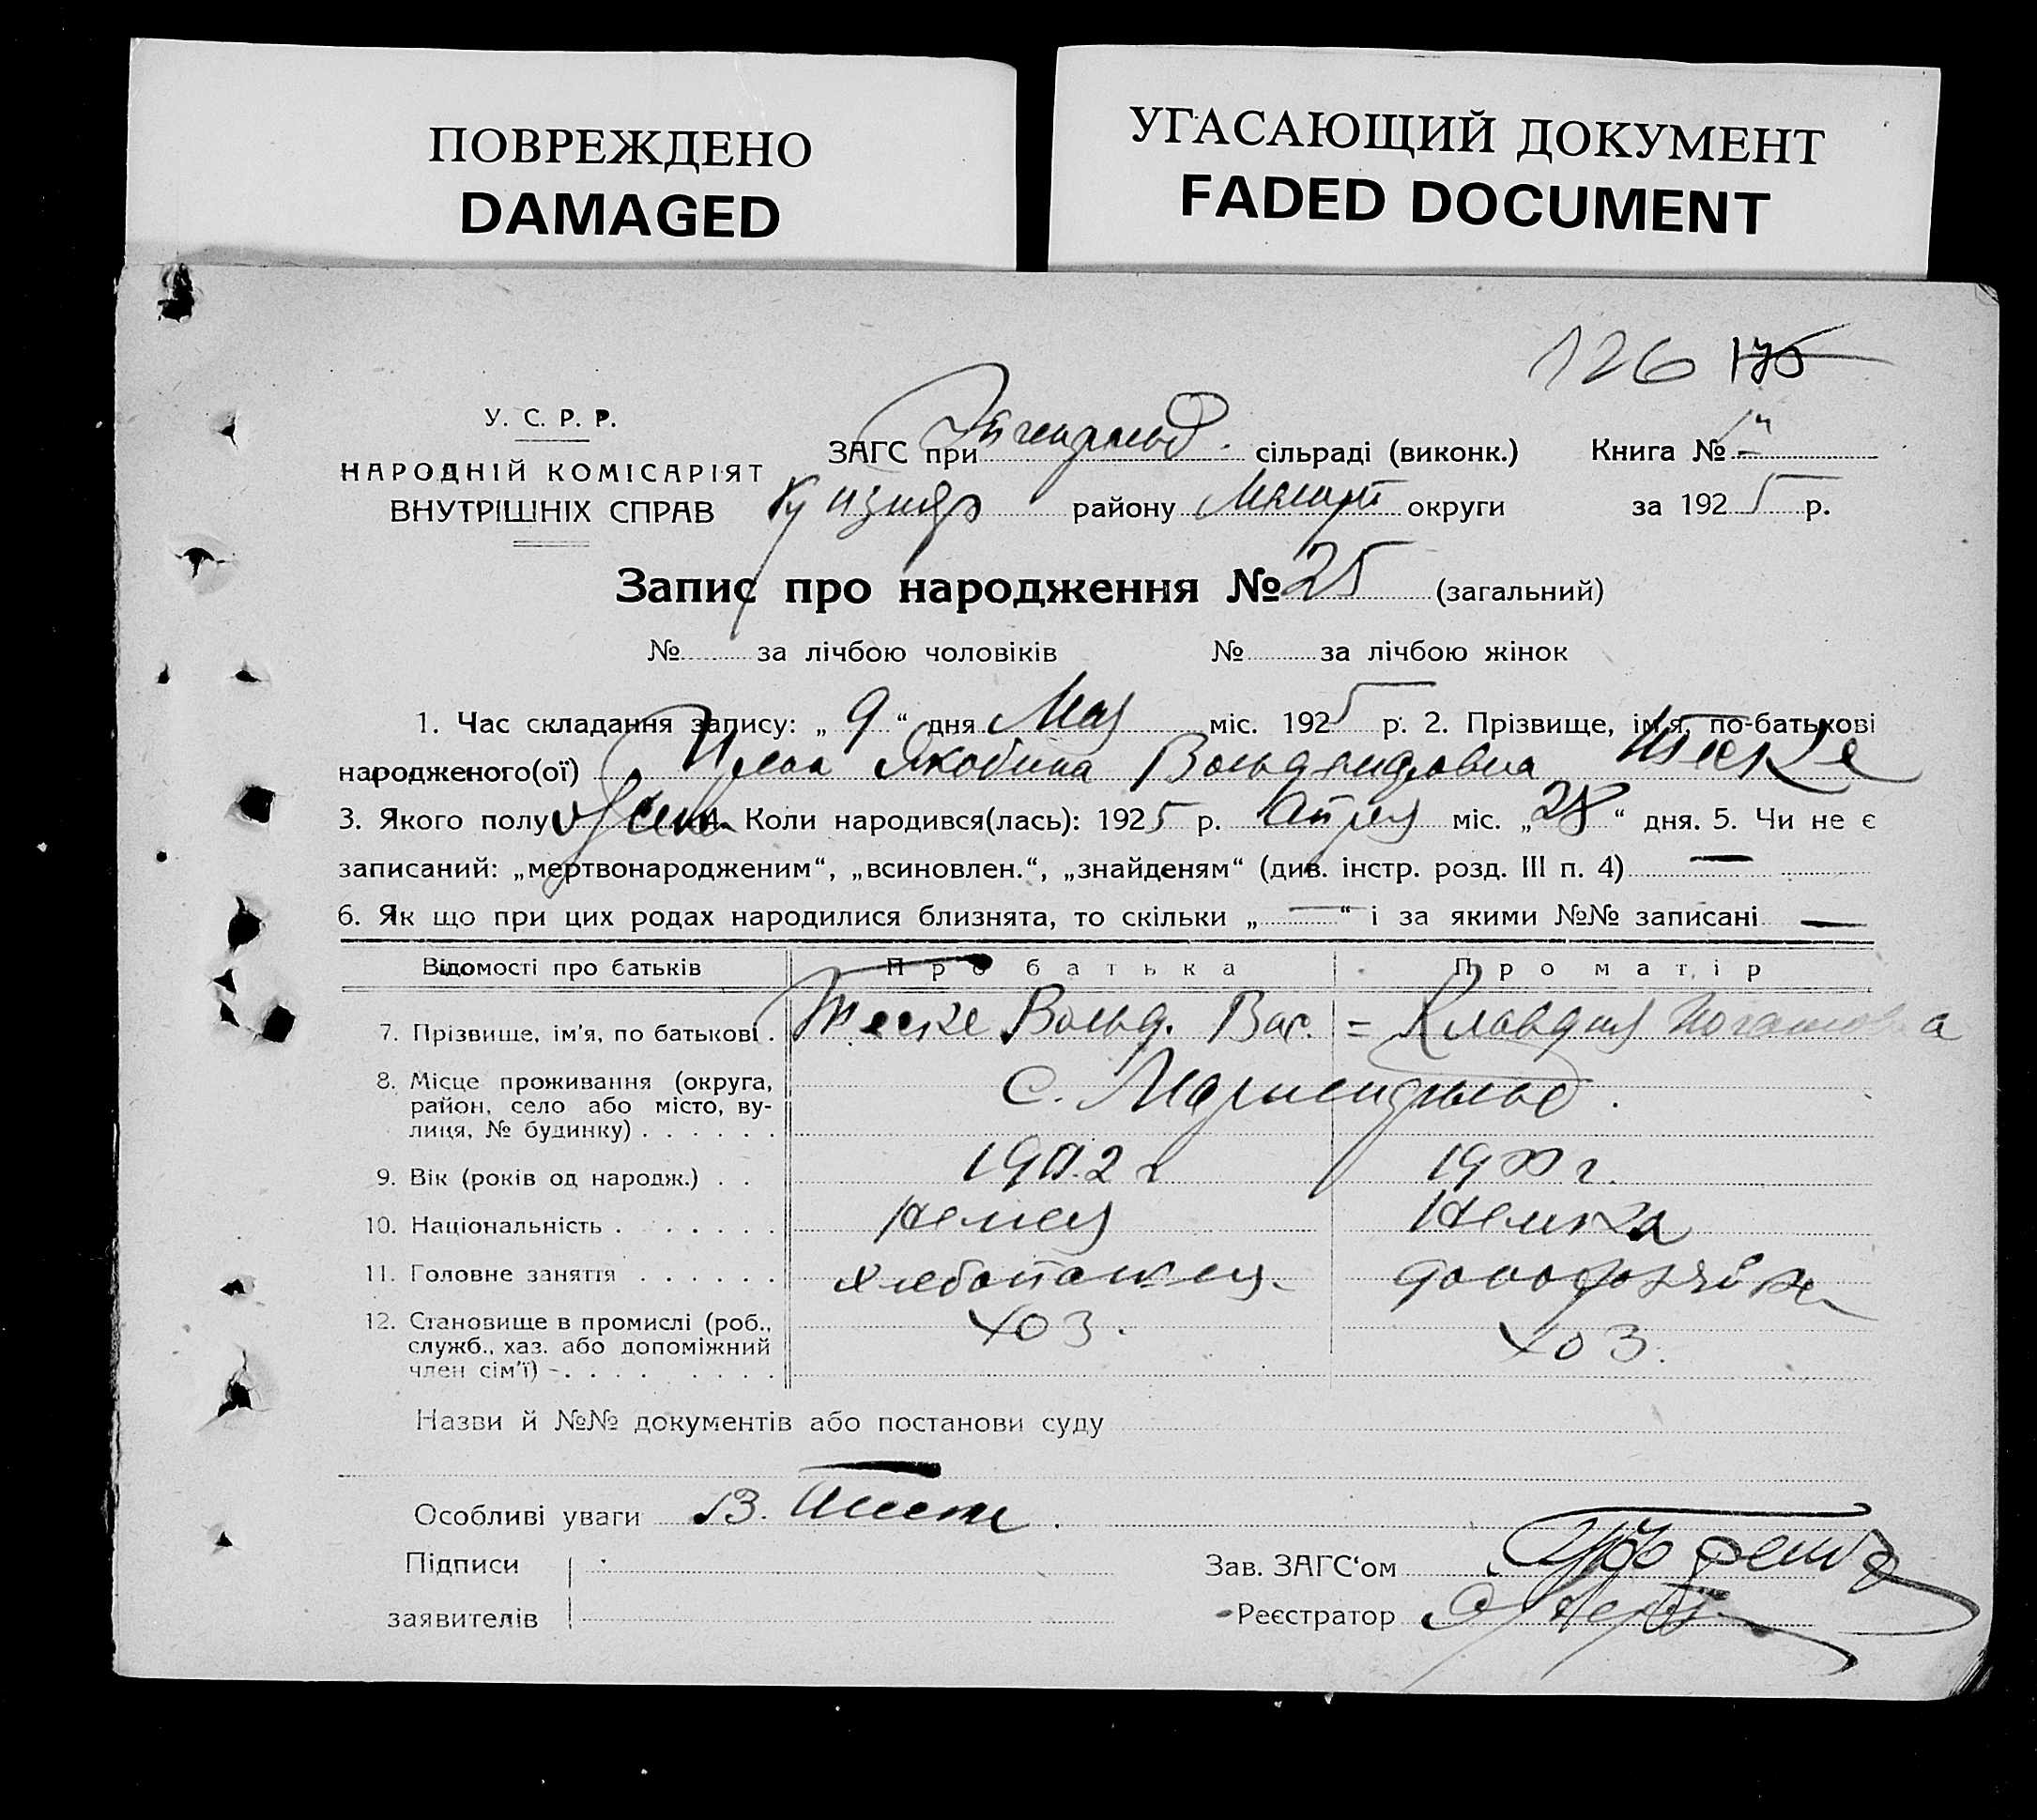 ПОВРЕЖДЕНО
DAMAGED
УГАСАЮЩИЙ ДОКУМЕНТ
FADED DOCUMENT
126 175
У. С. Р. Р.
НАРОДНІЙ КОМІСАРІЯТ
ВНУТРІШНІХ СПРАВ
ЗАГС при сільраді (виконк.) Книга №
району округи за 1925 р.
Запис про народження № 25 (загальний)
№ за лічбою чоловіків № за лічбою жінок
1. Час складання запису: „ 9 “ дня Мая міс. 1925 р. 2. Прізвище, ім'я, по-батькові
народженого(ої) Якобина Вольдемаровна Теске
3. Якого полу жен 4. Коли народився(лась): 1925 р. Апреля міс. „ 28 “ дня. 5. Чи не є
записаний: „мертвонародженим“, „всиновлен.“, „знайденям“ (див. інстр. розд. III п. 4) —
6. Як що при цих родах народилися близнята, то скільки „ — “ і за якими №№ записані —
Відомості про батьків Про батька Про матір
7. Прізвище, ім'я, по батькові . Теске Вольд. Вас. = Клавдия
8. Місце проживання (округа,
район, село або місто, ву-
лиця, № будинку) . . . . . . С. Мариенфельд .
9. Вік (років од народж.) . . 1902 г 1900 г.
10. Національність . . . . . . Немец Немка
11. Головне заняття . . . . . . Хлебопашец домохозяйка
12. Становище в промислі (роб.,
служб., хаз. або допоміжний
член сім'ї) - . . . . . . . . . хоз. хоз.
Назви й №№ документів або постанови суду
Особливі уваги В.
Підписи
заявителів
Зав. ЗАГС‘ом
Реєстратор